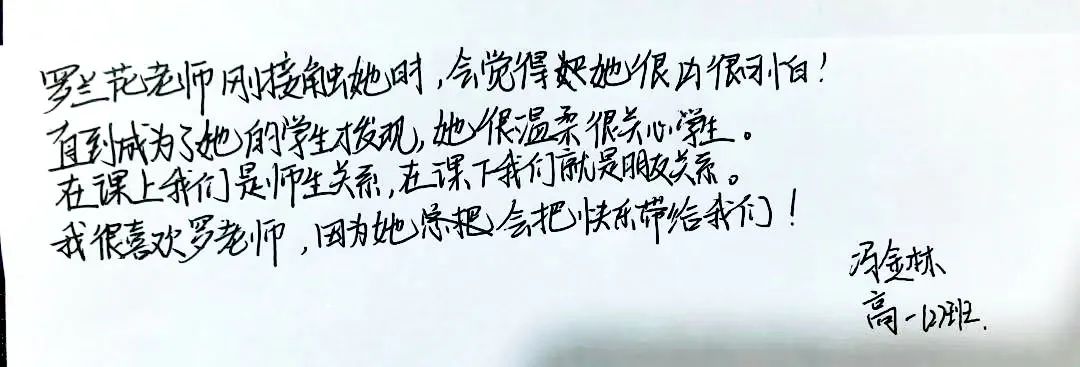 罗兰花老师刚接触她时，会觉得她很凶很可怕！
直到成为了她的学生才发现，她很温柔很关心学生。
在课上我们是师生关系，在课下我们就是朋友关系。
我很喜欢罗老师，因为她总会把快乐带给我们！
冯金林
高一(2)班.